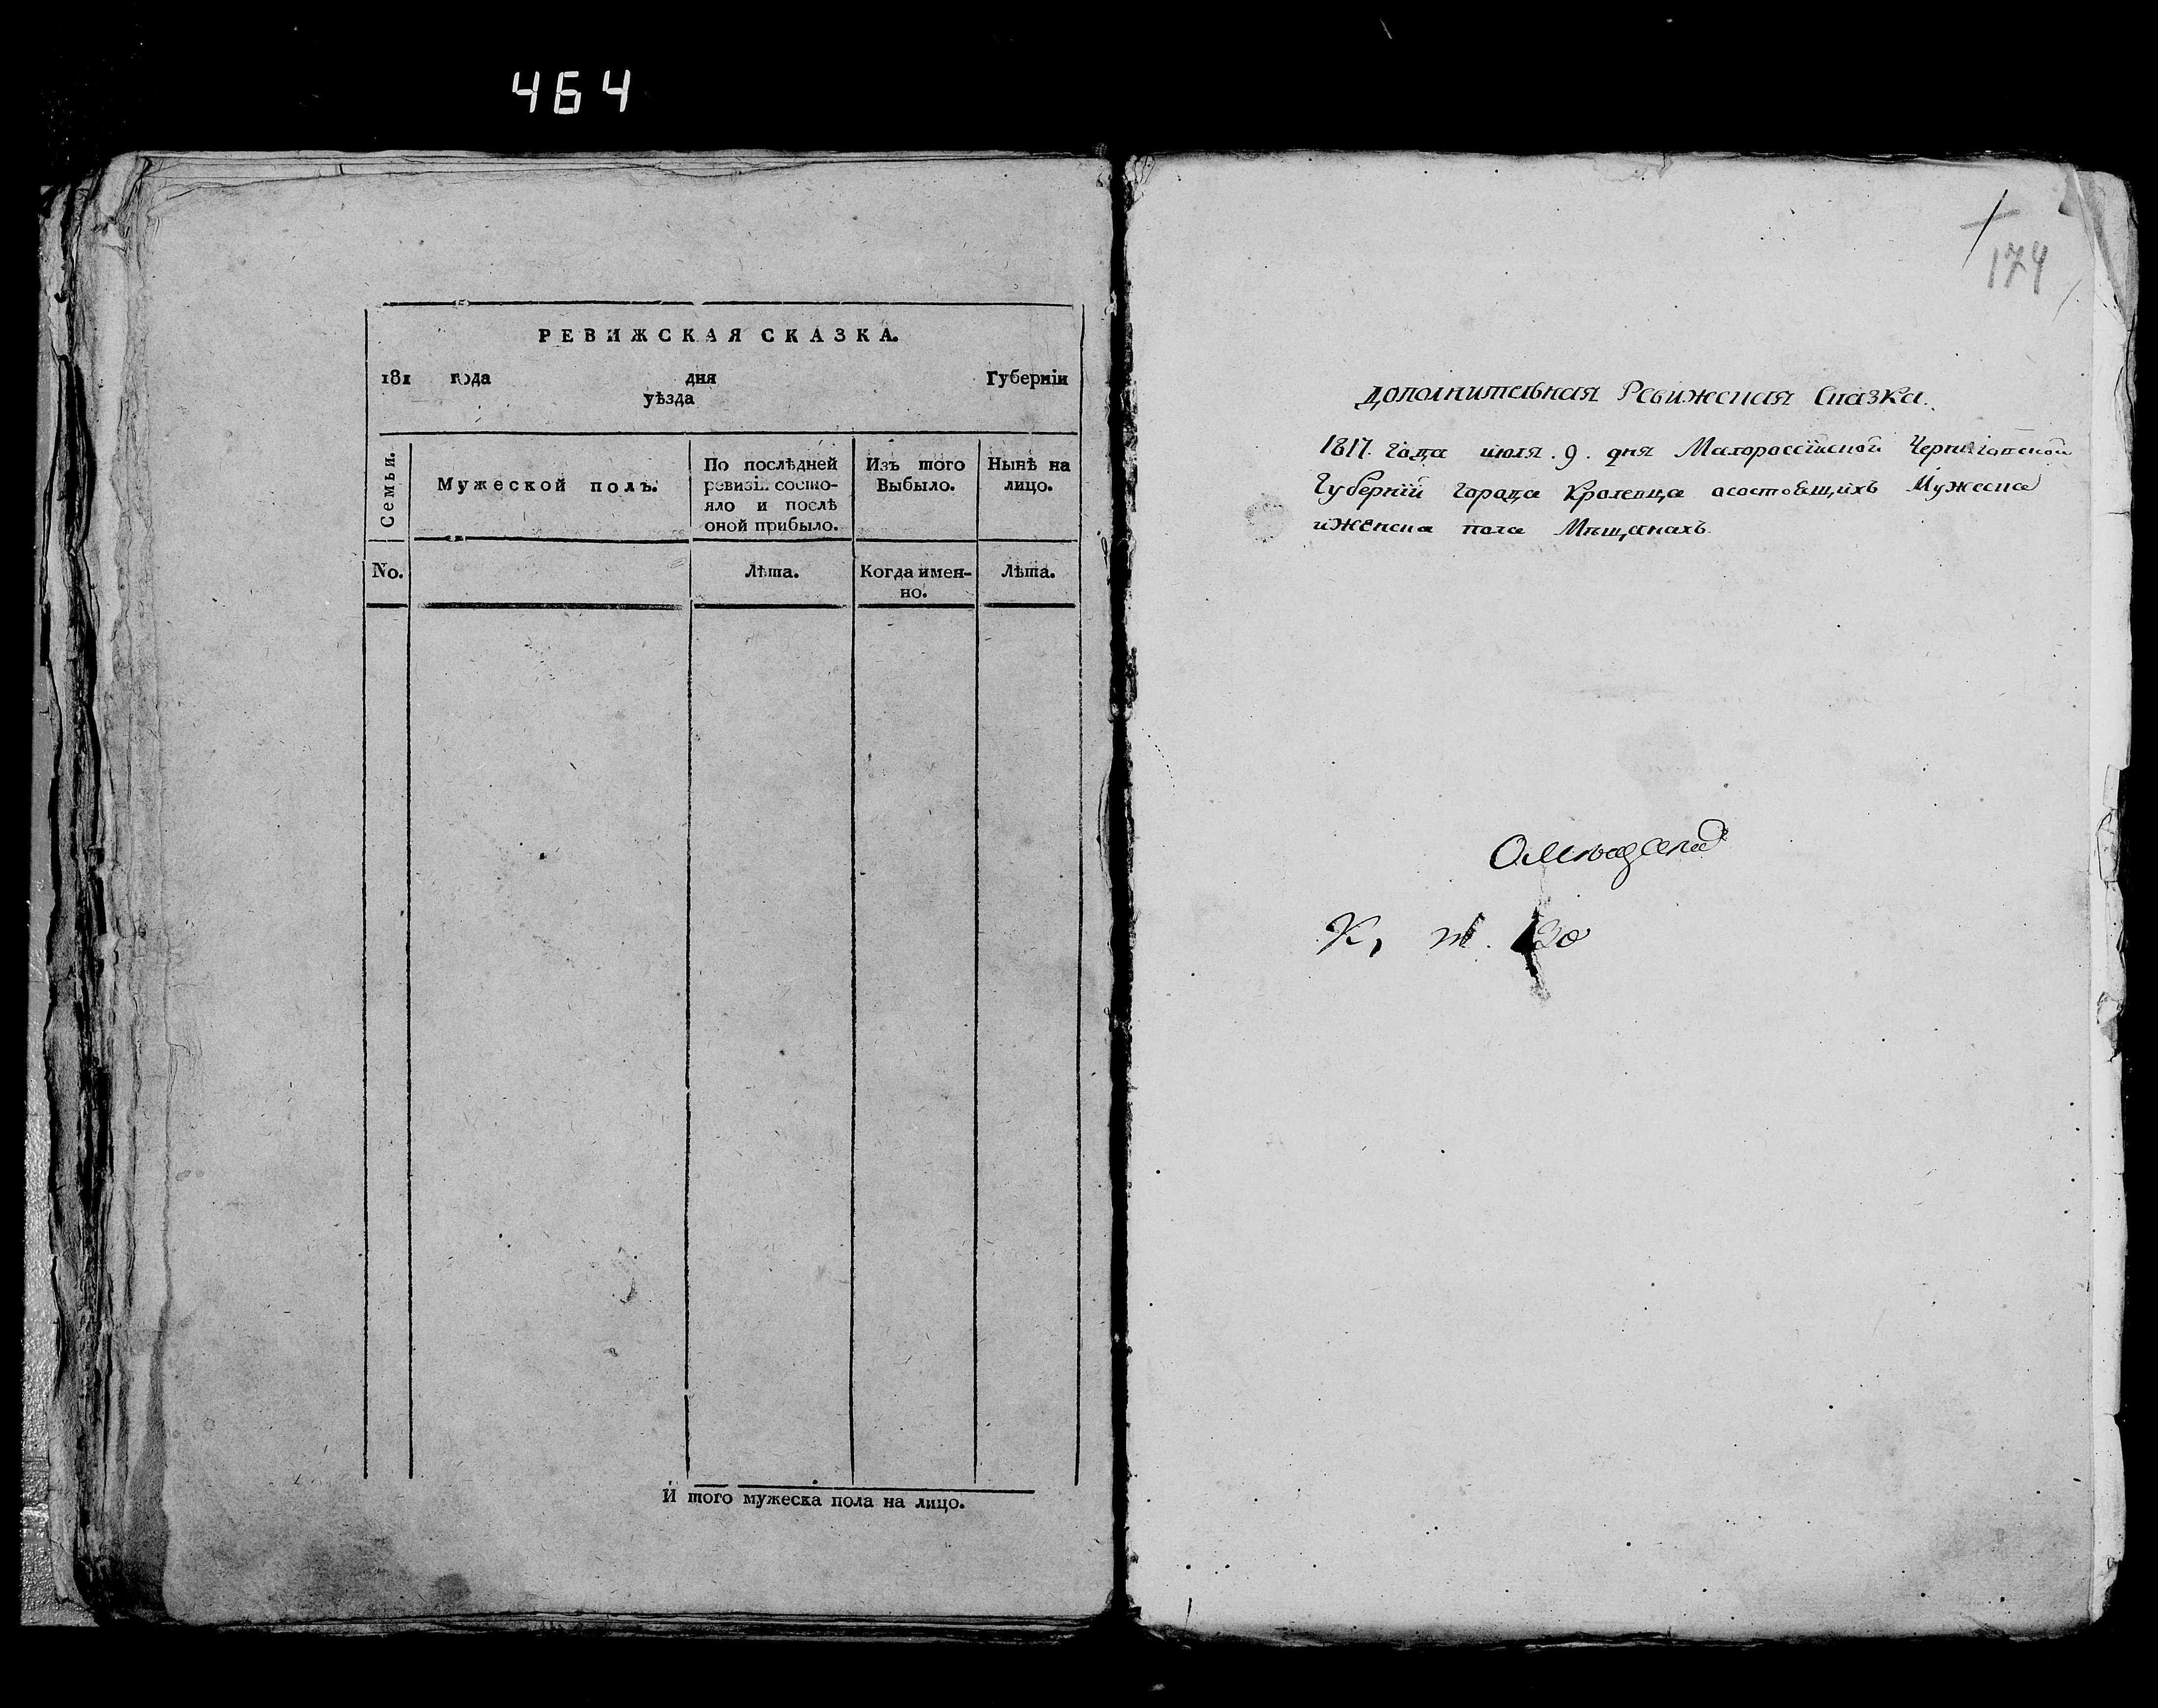 464
РЕВИЖСКАЯ СКАЗКА.
181 года дня Губерніи
уѣзда
Семьи.
Мужеской полъ.
По послѣдней
ревизіи состо-
яло и послѣ
оной прибыло.
Изъ того
Выбыло.
Нынѣ на
лицо.
No.
Лѣта.
Когда имен-
но.
Лѣта.
И того мужеска пола на лицо.
174
Дополнительная Ревижская Сказка.
1817. года июля. 9. дня Малороссійской Черниговской
Губерніи города Кролевца осостоящихъ Мужеска
иженска пола Мѣщанахъ.
К,